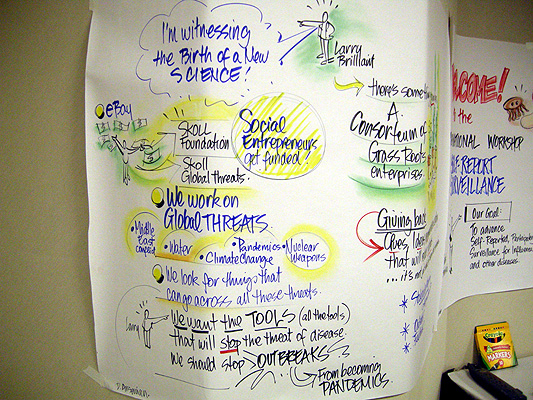 I'm witnessing
the Birth of a New
SCIENCE!
Larry
Brilliant
eBay
$
SKOLL
Foundation
Skoll
Global threats.
Social
Entrepreneurs
get funded!
We work on
Global THREATS
• Middle
East
• Water
• Climate Change
• Pandemics
• Nuclear
Weapons
We look for things that
can go across all these threats.
Larry
We want the TOOLS (all the tools)
that will stop the threat of disease.
We should stop OUTBREAKS
From becoming
PANDEMICS.
there's some
A
Consortium of
Grass Roots
enterprises
Giving back
Gives
that will
...it's
COME!
the
NATIONAL WORKSHOP
REPORT
Our Goal:
To advance
Self-Reported, Participatory
Surveillance for Influenza
and other diseases
Crayola
MARKERS